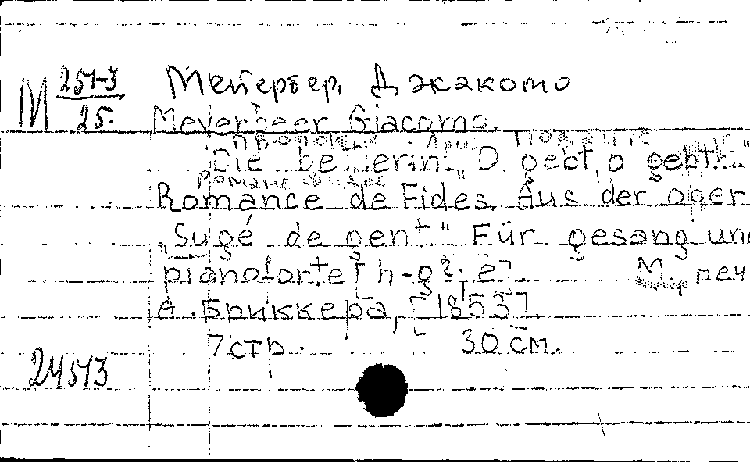 М 251-3/25. Мейербер, Джакомо
Meyerbeer Giacomo.
"Die bettlerin: "O gebt, o gebt..."
Romance de Fides. Aus der oper
"Sugé de gent" Für gesang und
pianoforte [h-g²; e]
М., печ
А. Бриккера, [1853].
7 стр. 30 см.
24513